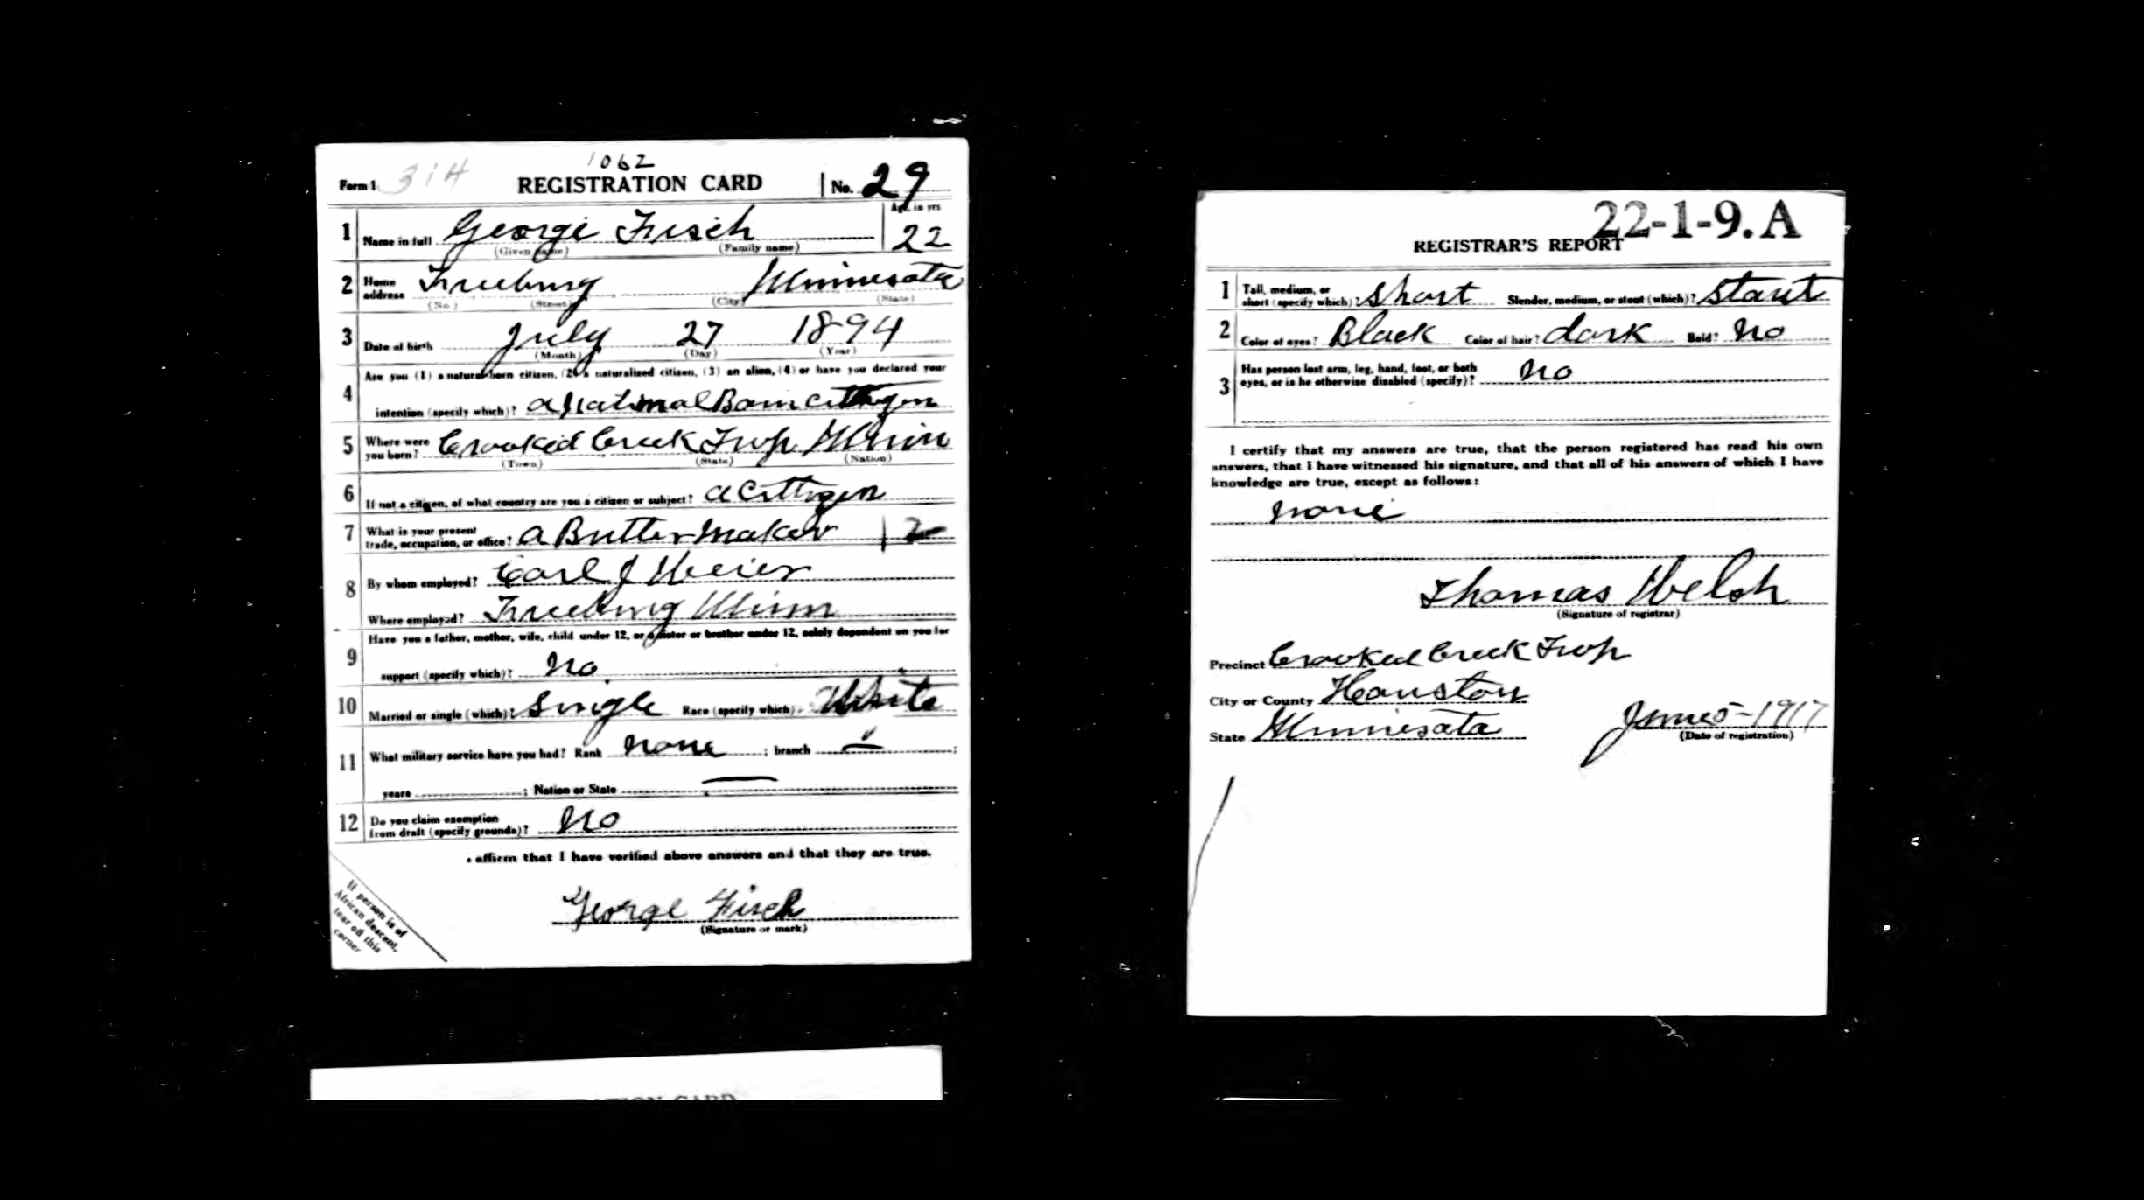 1062
Form 1 314 REGISTRATION CARD No. 29
Age, in yrs
1 Name in full George Fisch 22
(Given name) (Family name)
2 Home address Freeburg Minnesota
(No.) (Street) (City) (State)
3 Date of birth July 27 1894
(Month) (Day) (Year)
4 Are you (1) a natural-born citizen, (2) a naturalized citizen, (3) an alien, (4) or have you declared your
intention (specify which)? a National Born cittizen
5 Where were you born? Crooked Creek Twp Minn
(Town) (State) (Nation)
6 If not a citizen, of what country are you a citizen or subject? a Cittizen
7 What is your present trade, occupation, or office? a Butter maker
8 By whom employed? Carl J Meier
Where employed? Freeburg Minn
9 Have you a father, mother, wife, child under 12, or a sister or brother under 12, solely dependent on you for
support (specify which)? No
10 Married or single (which)? Single Race (specify which) White
11 What military service have you had? Rank none ; branch ;
years ; Nation or State
12 Do you claim exemption from draft (specify grounds)? No
affirm that I have verified above answers and that they are true.
George Fisch
(Signature or mark)
If person is of
African descent,
tear off this
corner
TION CARD
22-1-9. A
REGISTRAR'S REPORT
1 Tall, medium, or short (specify which)? Short Slender, medium, or stout (which)? Stout
2 Color of eyes? Black Color of hair? dark Bald? No
3 Has person lost arm, leg, hand, foot, or both eyes, or is he otherwise disabled (specify)? No
I certify that my answers are true, that the person registered has read his own
answers, that I have witnessed his signature, and that all of his answers of which I have
knowledge are true, except as follows:
none
Thomas Welsh
(Signature of registrar)
Precinct Crooked Creek Twp
City or County Houston
State Minnesota June 5-1917
(Date of registration)